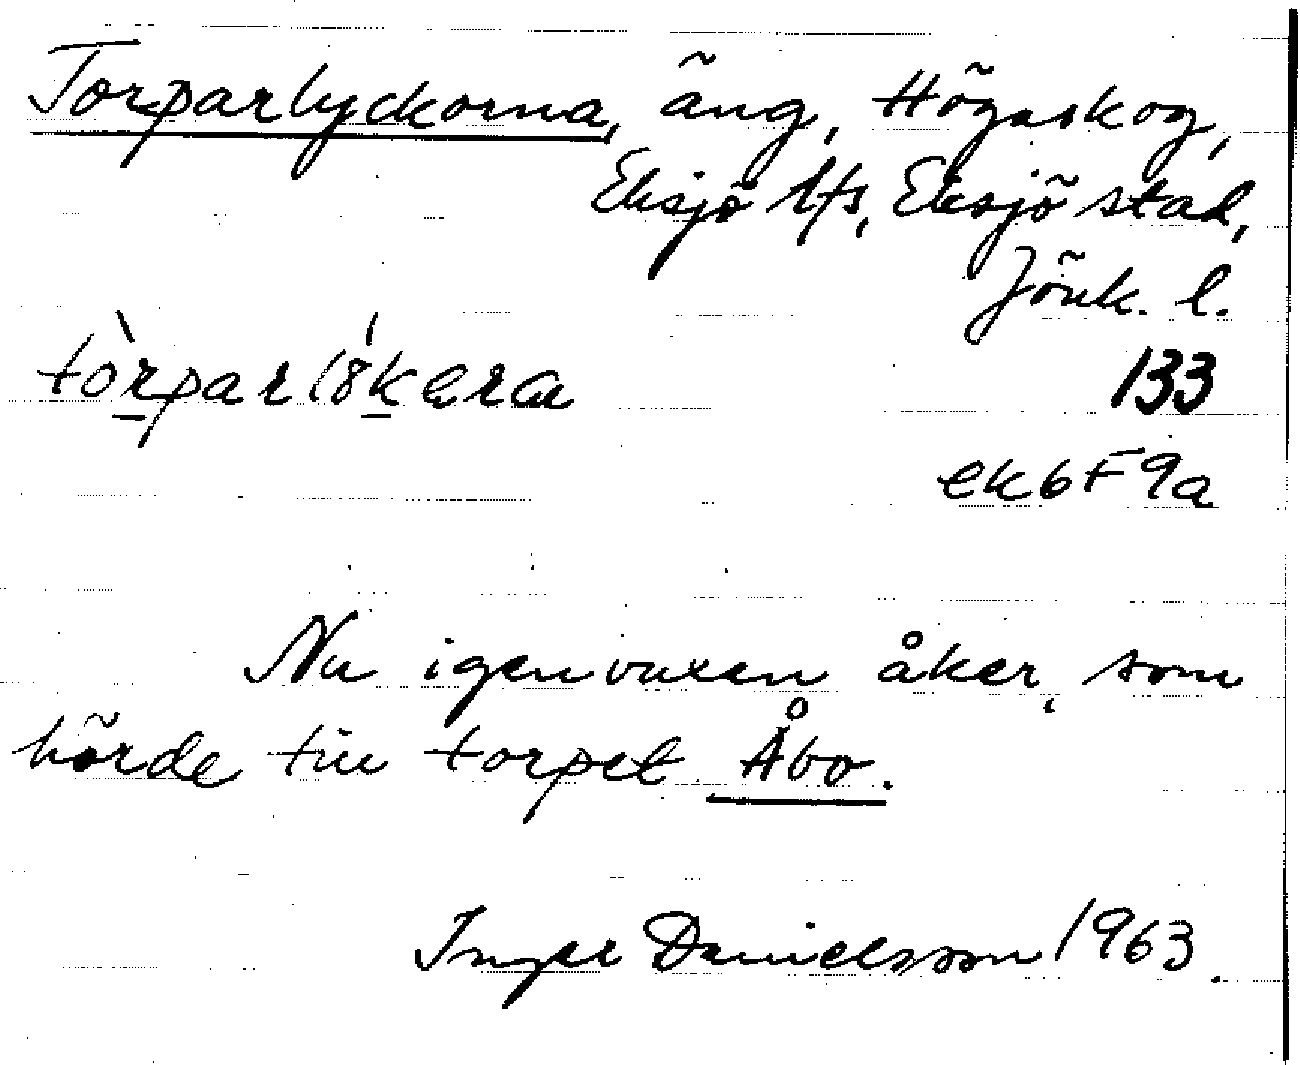 Torparlyckorna, äng, Högaskog,
Eksjö lfs, Eksjö stad,
Jönk. l.
tòrparl8́kera
133
ek6F9a
Nu igenvuxen åker, som
hörde till torpet Åbo.
Inger Danielsson 1963.